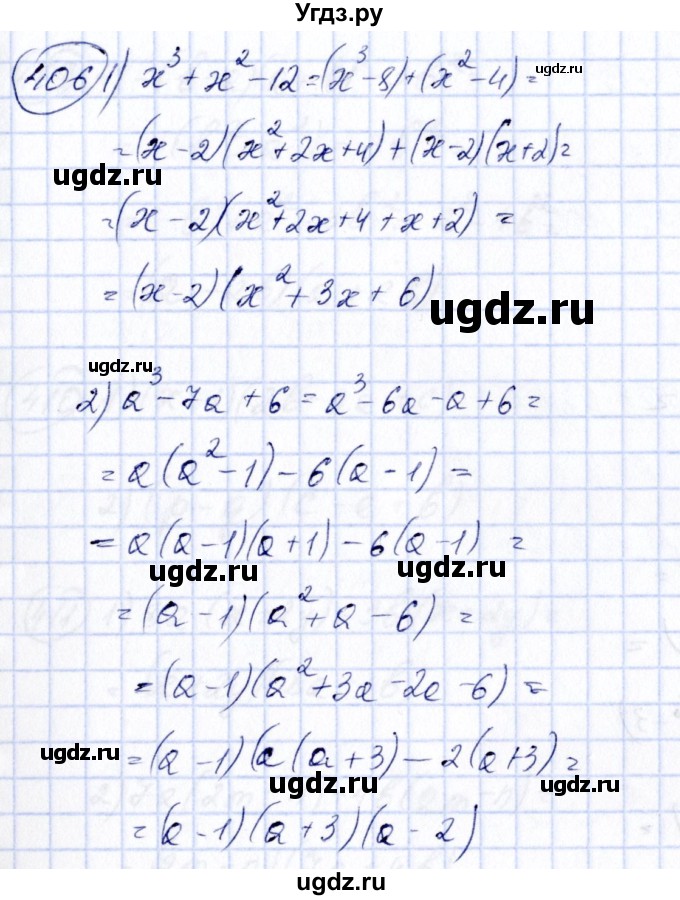 Угдз.ру
406 1) x³ + x² - 12 = (x³ - 8) + (x² - 4) =
= (x - 2)(x² + 2x + 4) + (x - 2)(x + 2) =
= (x - 2)(x² + 2x + 4 + x + 2) =
= (x - 2)(x² + 3x + 6)
2) a³ - 7a + 6 = a³ - 6a - a + 6 =
= a(a² - 1) - 6(a - 1) =
= a(a - 1)(a + 1) - 6(a - 1) =
= (a - 1)(a² + a - 6) =
= (a - 1)(a² + 3a - 2a - 6) =
= (a - 1)(a(a + 3) - 2(a + 3) =
= (a - 1)(a + 3)(a - 2)
ugdz.ru
ugdz.ru
ugdz.ru
ugdz.ru
ugdz.ru
ugdz.ru
ugdz.ru
ugdz.ru
ugdz.ru
ugdz.ru
ugdz.ru
ugdz.ru